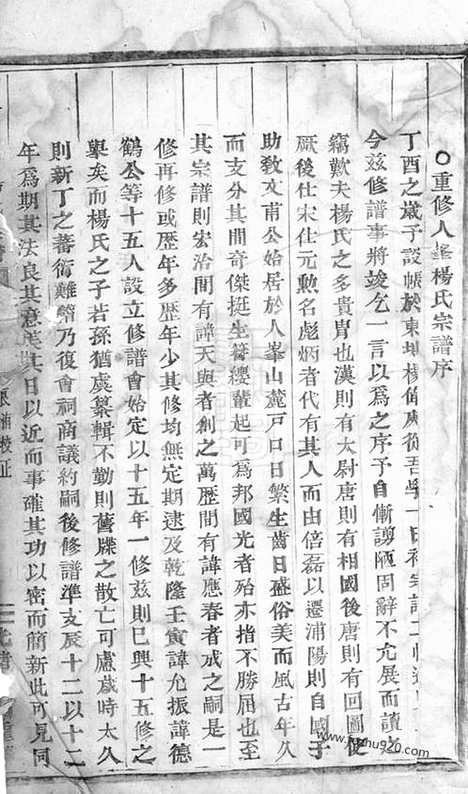 ○重修人峯楊氏宗譜序
丁酉之歲予設帳於東
今兹修譜事將竣乞一言以爲之序予自慚謭陋固辭不允展而讀
竊歎夫楊氏之多貴胄也漢則有太尉唐則有相國後唐則有回圖使
厥後仕宋仕元勲名彪炳者代有其人而由倍磊以遷浦陽則自國子
助敎文甫公始居於人峯山麓戸口日繁生齒日盛俗美而風古年久
而支分其間音傑挺生簪纓輩起可爲邦國光者殆亦指不勝屈也至
其宗譜則宏治間有諱天與者創之萬歴間有諱應春者成之嗣是一
修再修或歴年多或歴年少其修均無定期逮及乾隆壬寅諱允振諱德
鶴公等十五人設立修譜會始定以十五年一修兹則已與十五修之
舉矣而楊氏之子若孫猶虞纂輯不勤則舊牒之散亡可慮歲時太久
則新丁之蕃衍難稽乃復會祠商議約嗣後修譜準支辰十二以十二
年爲期其法良其意美其日以近而事確其功以密而簡新此可見祠
校正
www.jiapu920.com